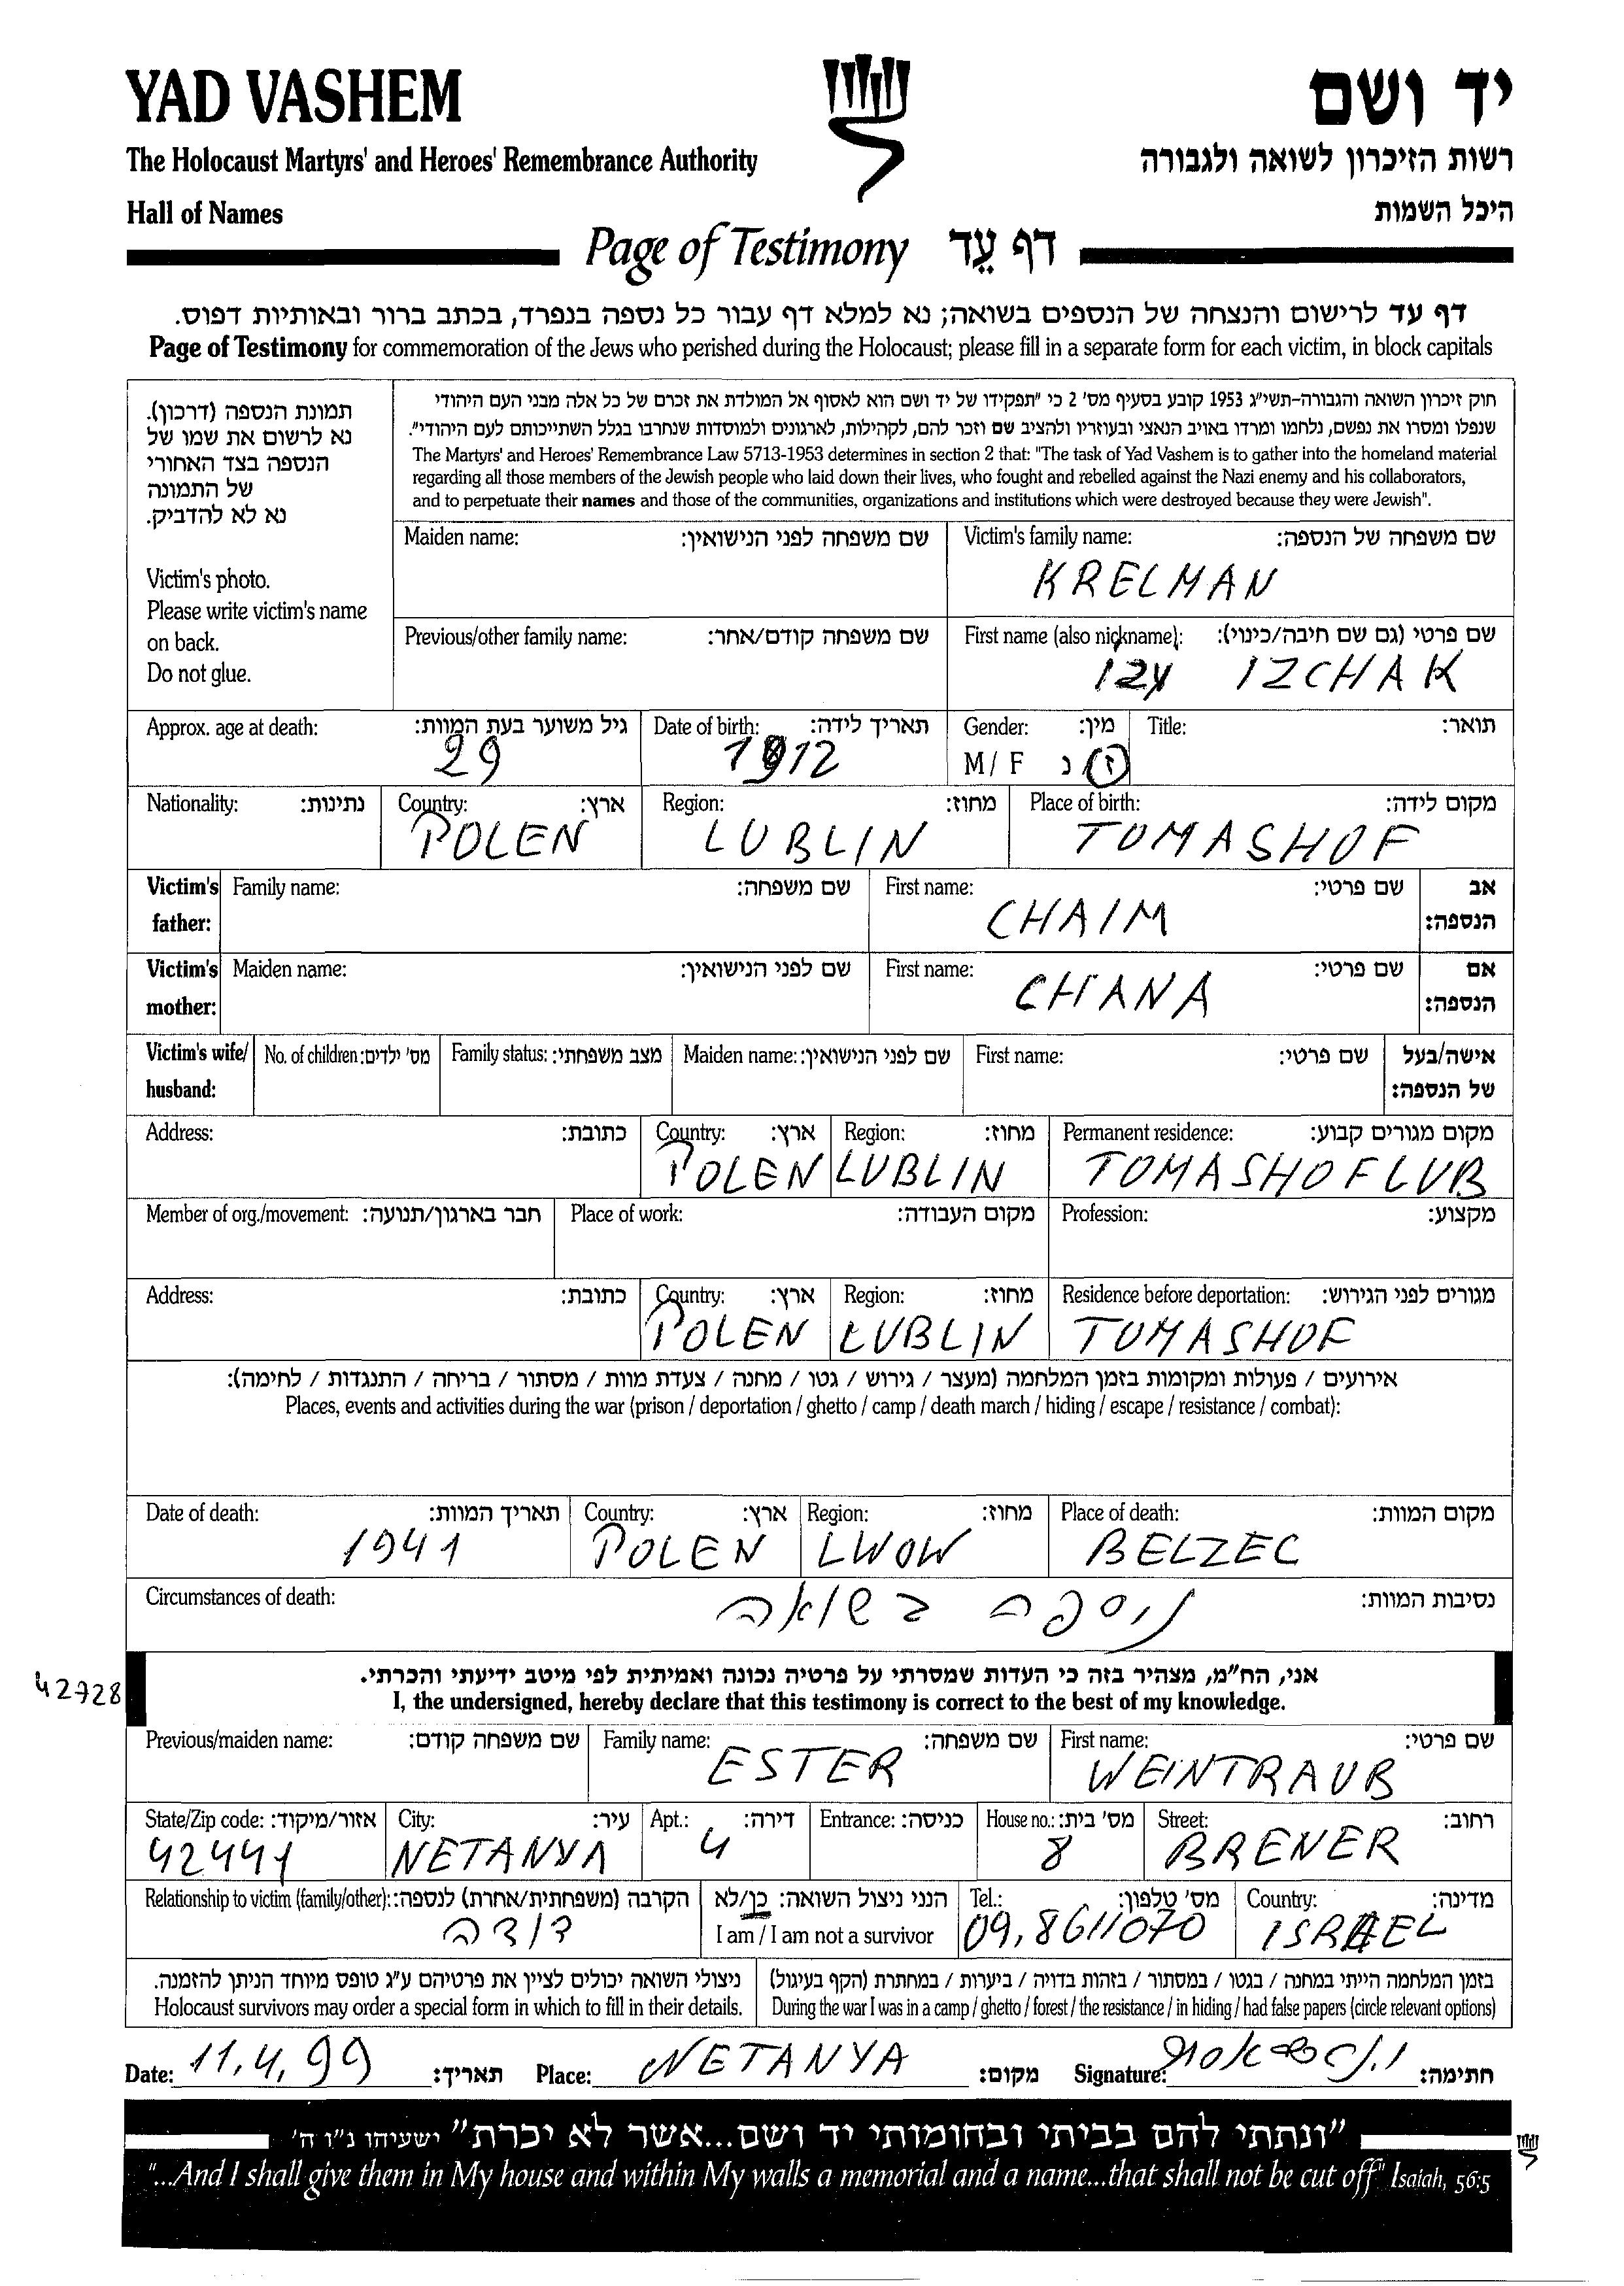 YAD VASHEM
יד ושם
The Holocaust Martyrs' and Heroes' Remembrance Authority
רשות הזיכרון לשואה ולגבורה
Hall of Names
היכל השמות
Page of Testimony דף עֵד
דף עד לרישום והנצחה של הנספים בשואה; נא למלא דף עבור כל נספה בנפרד, בכתב ברור ובאותיות דפוס.
Page of Testimony for commemoration of the Jews who perished during the Holocaust; please fill in a separate form for each victim, in block capitals
תמונת הנספה (דרכון).
נא לרשום את שמו של
הנספה בצד האחורי
של התמונה
נא לא להדביק.
Victim's photo.
Please write victim's name
on back.
Do not glue.
חוק זיכרון השואה והגבורה-תשי"ג 1953 קובע בסעיף מס' 2 כי "תפקידו של יד ושם הוא לאסוף אל המולדת את זכרם של כל אלה מבני העם היהודי
שנפלו ומסרו את נפשם, נלחמו ומרדו באויב הנאצי ובעוזריו ולהציב שם וזכר להם, לקהילות, לארגונים ולמוסדות שנחרבו בגלל השתייכותם לעם היהודי".
The Martyrs' and Heroes' Remembrance Law 5713-1953 determines in section 2 that: "The task of Yad Vashem is to gather into the homeland material
regarding all those members of the Jewish people who laid down their lives, who fought and rebelled against the Nazi enemy and his collaborators,
and to perpetuate their names and those of the communities, organizations and institutions which were destroyed because they were Jewish".
Maiden name: שם משפחה לפני הנישואין: Victim's family name: שם משפחה של הנספה:
KRELMAN
Previous/other family name: שם משפחה קודם/אחר: First name (also nickname): שם פרטי (גם שם חיבה/כינוי):
IZY IZCHAK
Approx. age at death: גיל משוער בעת המוות: Date of birth: תאריך לידה: Gender: מין: Title: תואר:
29 1912 M / F ז/נ
Nationality: נתינות: Country: ארץ: Region: מחוז: Place of birth: מקום לידה:
POLEN LUBLIN TOMASHOF
Victim's father: Family name: שם משפחה: First name: שם פרטי: אב הנספה:
CHAIM
Victim's mother: Maiden name: שם לפני הנישואין: First name: שם פרטי: אם הנספה:
CHANA
Victim's wife/ husband: No. of children: מס' ילדים: Family status: מצב משפחתי: Maiden name: שם לפני הנישואין: First name: שם פרטי: אישה/בעל של הנספה:
Address: כתובת: Country: ארץ: Region: מחוז: Permanent residence: מקום מגורים קבוע:
POLEN LUBLIN TOMASHOF LUB
Member of org./movement: חבר בארגון/תנועה: Place of work: מקום העבודה: Profession: מקצוע:
Address: כתובת: Country: ארץ: Region: מחוז: Residence before deportation: מגורים לפני הגירוש:
POLEN LUBLIN TOMASHOF
אירועים / פעולות ומקומות בזמן המלחמה (מעצר / גירוש / גטו / מחנה / צעדת מוות / מסתור / בריחה / התנגדות / לחימה):
Places, events and activities during the war (prison / deportation / ghetto / camp / death march / hiding / escape / resistance / combat):
Date of death: תאריך המוות: Country: ארץ: Region: מחוז: Place of death: מקום המוות:
1941 POLEN LWOW BELZEC
Circumstances of death: נסיבות המוות:
ניספה בשואה
אני, הח"מ, מצהיר בזה כי העדות שמסרתי על פרטיה נכונה ואמיתית לפי מיטב ידיעתי והכרתי.
42728
I, the undersigned, hereby declare that this testimony is correct to the best of my knowledge.
Previous/maiden name: שם משפחה קודם: Family name: שם משפחה: First name: שם פרטי:
ESTER WEINTRAUB
State/Zip code: אזור/מיקוד: City: עיר: Apt.: דירה: Entrance: כניסה: House no.: מס' בית: Street: רחוב:
42441 NETANYA 4 8 BRENER
Relationship to victim (family/other): הקרבה (משפחתית/אחרת) לנספה: הנני ניצול השואה: כן/לא Tel.: מס' טלפון: Country: מדינה:
דודה I am / I am not a survivor 09,8611070 ISRAEL
ניצולי השואה יכולים לציין את פרטיהם ע"ג טופס מיוחד הניתן להזמנה.
Holocaust survivors may order a special form in which to fill in their details.
בזמן המלחמה הייתי במחנה / בגטו / במסתור / בזהות בדויה / ביערות / במחתרת (הקף בעיגול)
During the war I was in a camp / ghetto / forest / the resistance / in hiding / had false papers (circle relevant options)
Date: 11.4.99 תאריך: Place: NETANYA מקום: Signature: חתימה:
"ונתתי להם בביתי ובחומותי יד ושם...אשר לא יכרת" ישעיהו נ"ו ה'
"...And I shall give them in My house and within My walls a memorial and a name...that shall not be cut off" Isaiah, 56:5